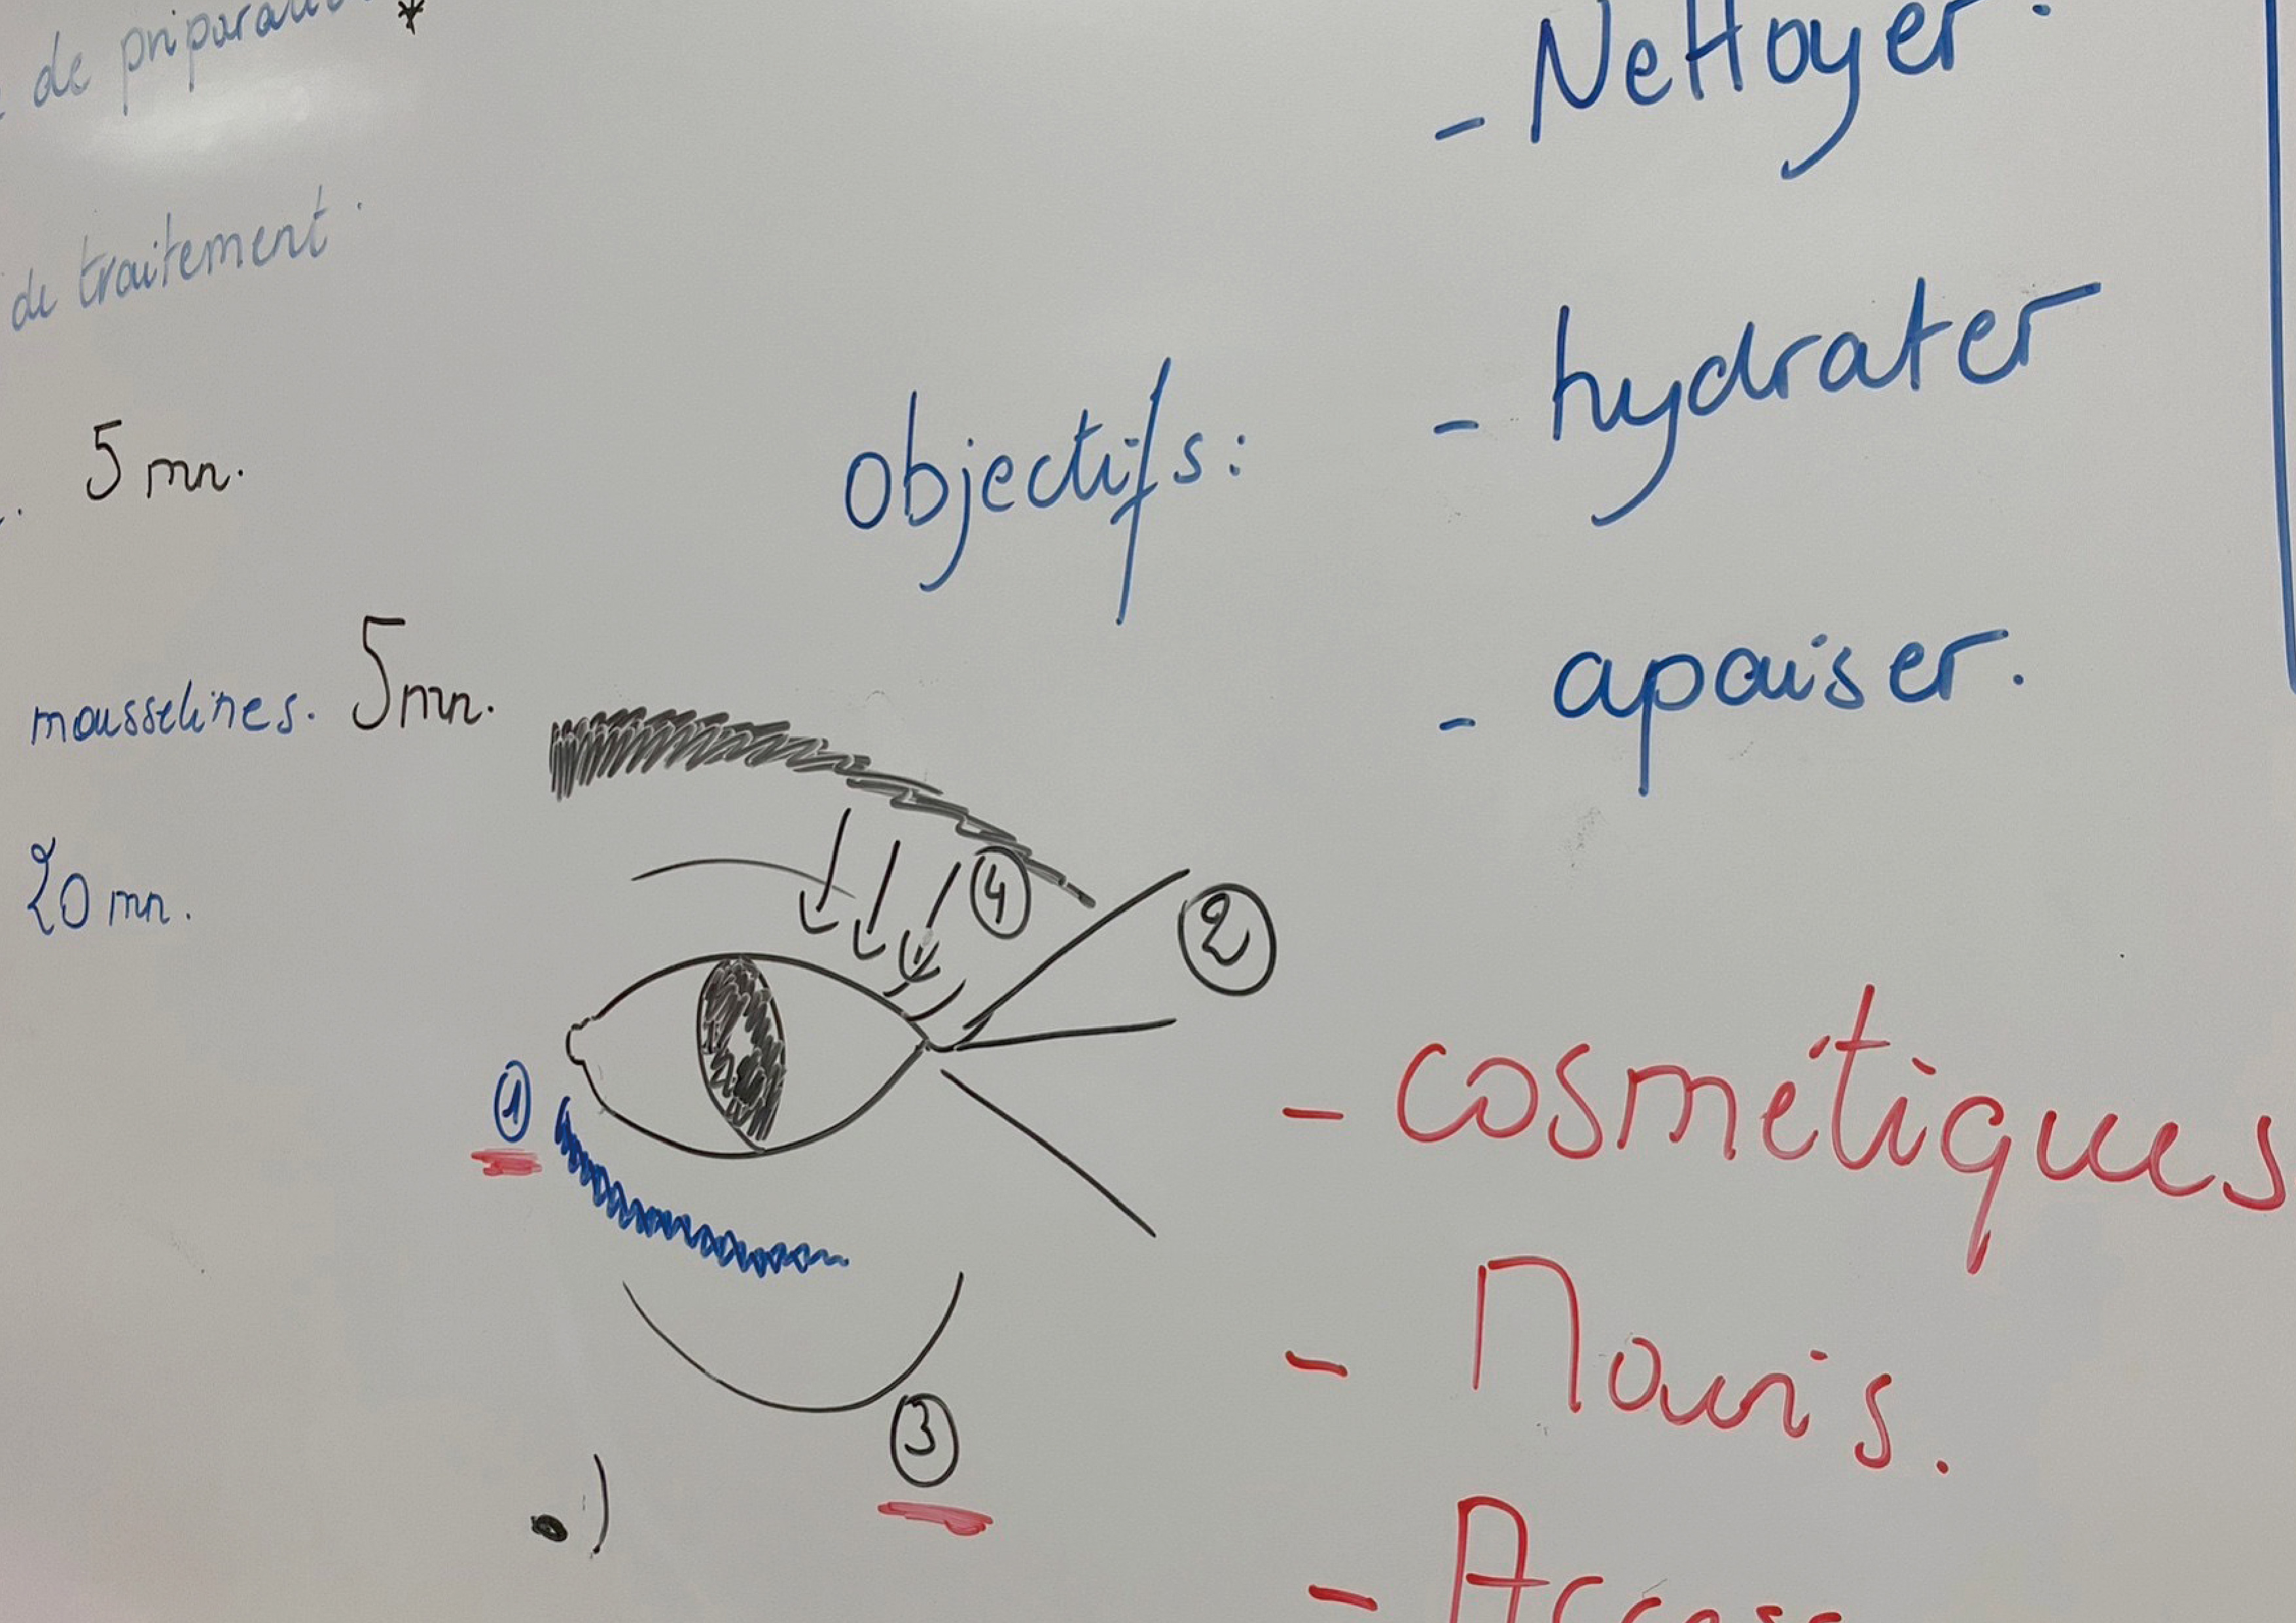 de
de traitement.
5 mn.
mousselines. 5 mn.
20 mn.
objectifs:
- Nettoyer.
- hydrater
- apaiser.
4
2
1
3
- cosmétiques
-
-